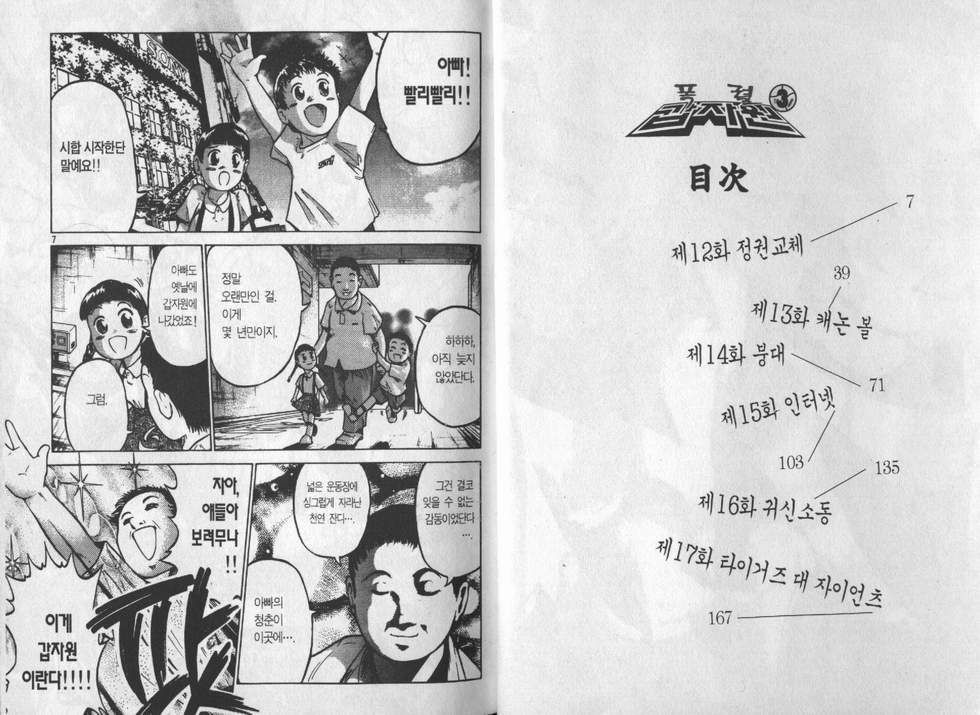 갑자원 3
目次
7
제12화 정권교체
39
제13화 캐논 볼
제14화 붕대
71
제15화 인터넷
103
135
제16화 귀신소동
제17화 타이거즈 대 자이언츠
167
아빠!
빨리빨리!!
시합 시작한단
말예요!!
7
하하하,
아직 늦지
않았단다.
정말
오랜만인 걸.
이게
몇 년만이지.
아빠도
옛날에
갑자원에
나갔었죠!
그럼.
그건 결코
잊을 수 없는
감동이었단다
….
넓은 운동장에
싱그럽게 자라난
천연 잔디….
아빠의
청춘이
이곳에….
자아,
얘들아
보려무나
!!
이게
갑자원
이란다!!!!